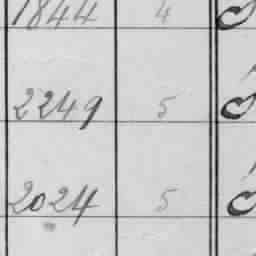 1844 4
2249 5
2024 5